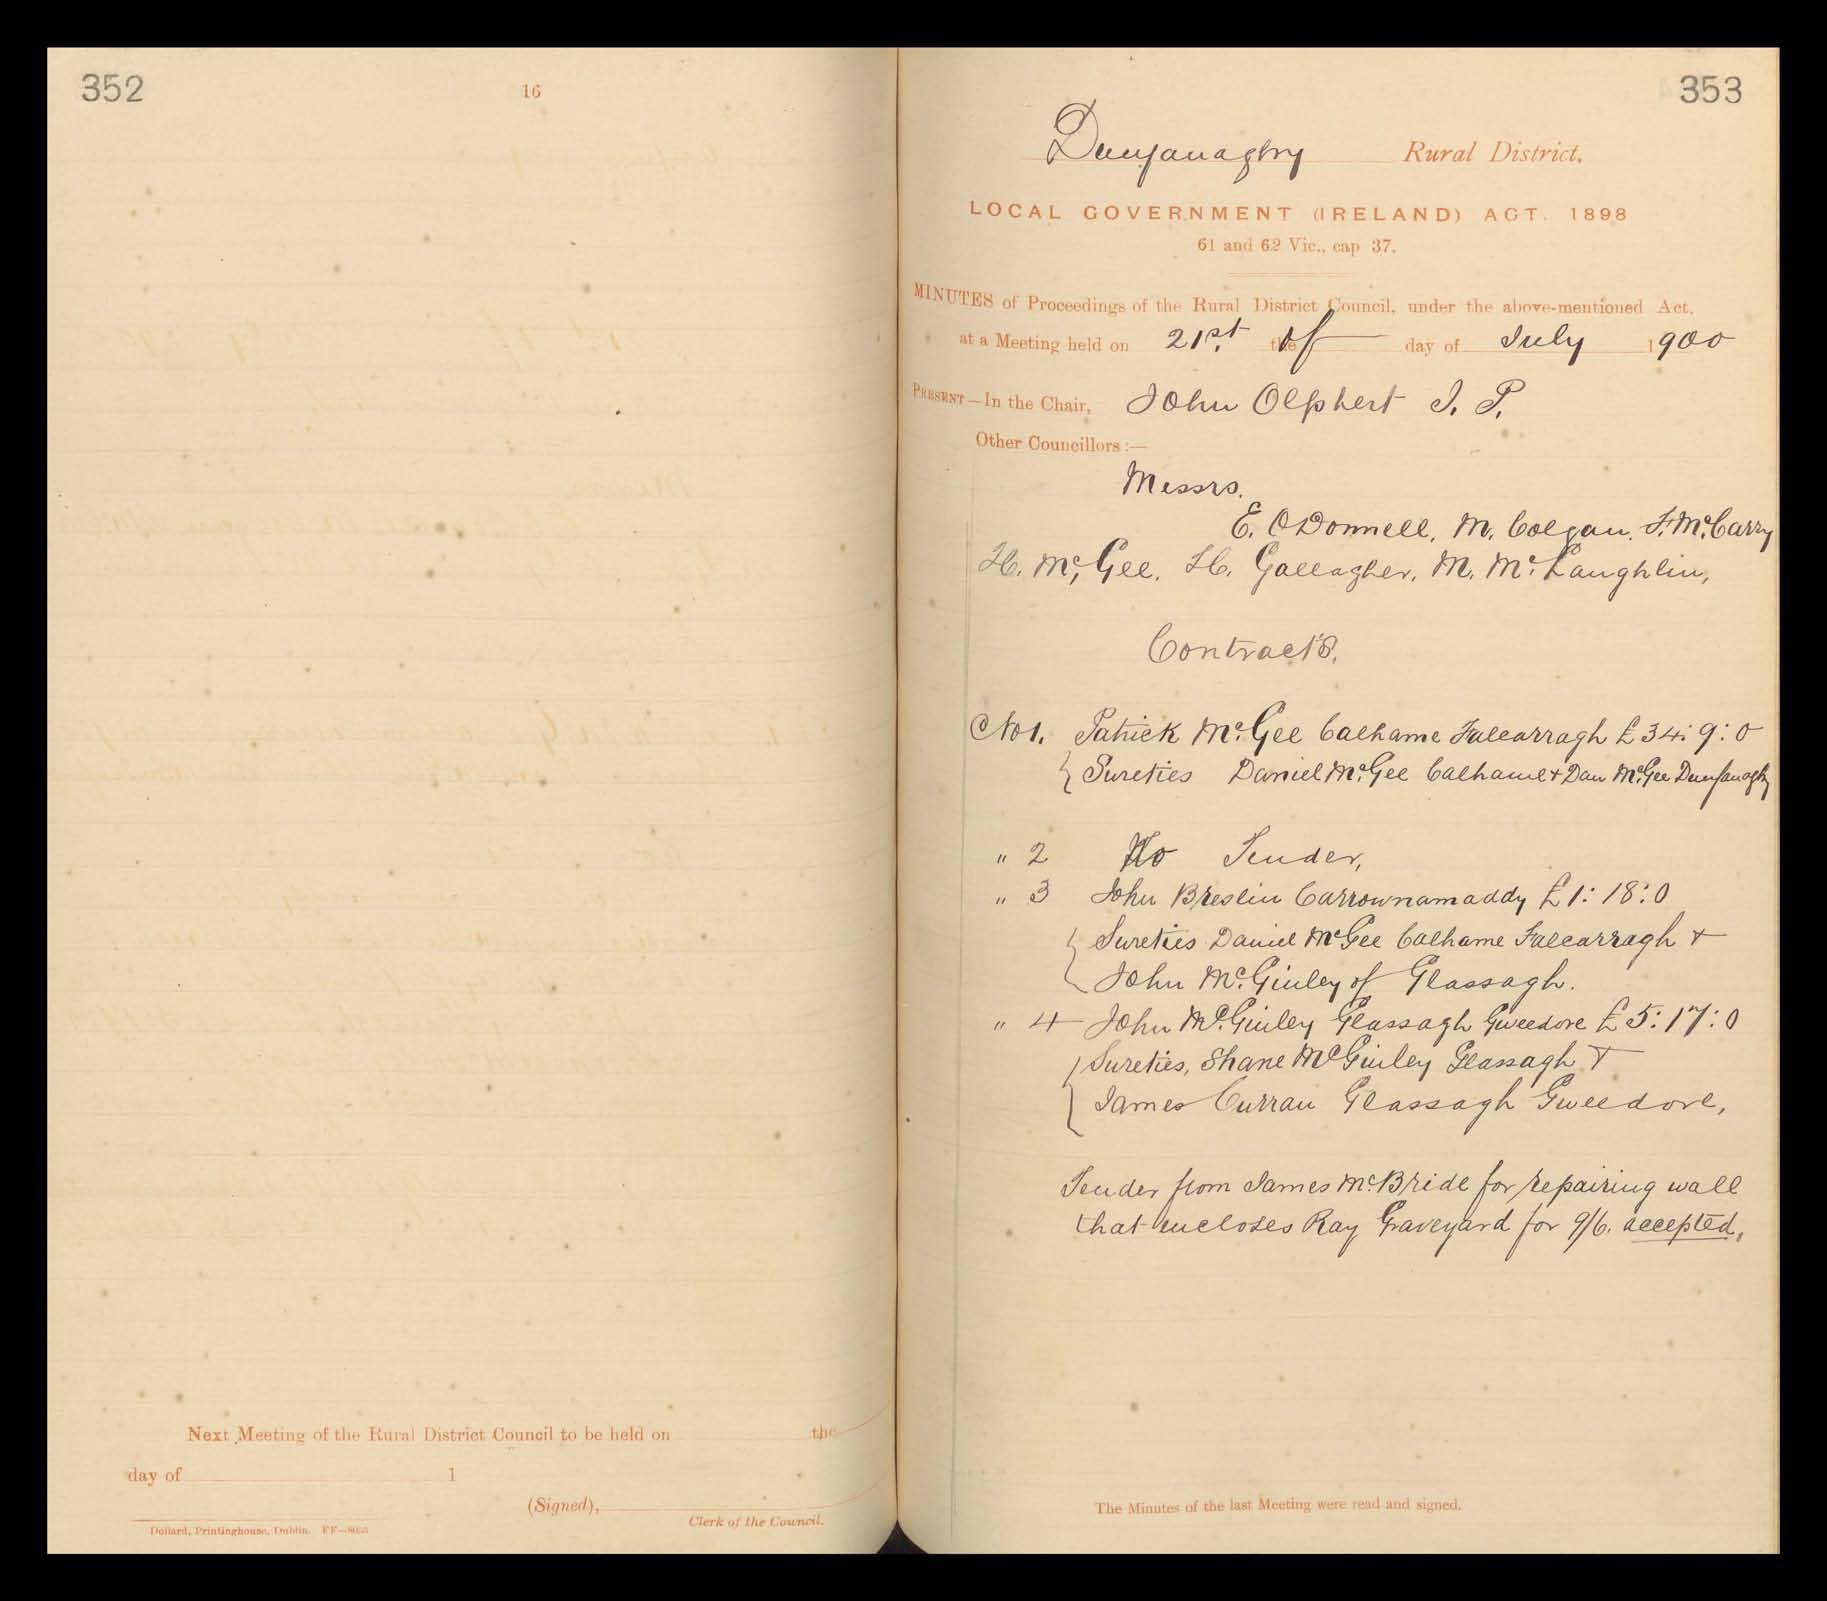 352
16
Next Meeting of the Rural District Council to be held on the
day of 1
(Signed),
Clerk of the Council.
Dollard, Printinghouse, Dublin.
353
Dunfanaghy Rural District.
LOCAL GOVERNMENT (IRELAND) ACT. 1898
61 and 62 Vic., cap 37.
MINUTES of Proceedings of the Rural District Council, under the above-mentioned Act,
at a Meeting held on 21st. the of day of July 1900
PRESENT—In the Chair, John Olphert J. P.
Other Councillors :—
Messrs.
E. O'Donnell, M. Colgan. F. McCarry
H. McGee. H. Gallagher, M. McLaughlin,
Contracts.
No 1. Patrick McGee Calhame Falcarragh £34: 9: 0
Sureties Daniel McGee Calhame + Dan McGee Dunfanaghy
" 2 No Tender,
" 3 John Breslin Carrownamaddy £1: 18: 0
Sureties Daniel McGee Calhame Falcarragh +
John McGinley of Glassagh.
" 4 John McGinley Glassagh Gweedore £5: 17: 0
Sureties, Shane McGinley Glassagh +
James Curran Glassagh Gweedore,
Tender from James McBride for repairing wall
that encloses Ray Graveyard for 9/6. accepted,
The Minutes of the last Meeting were read and signed.